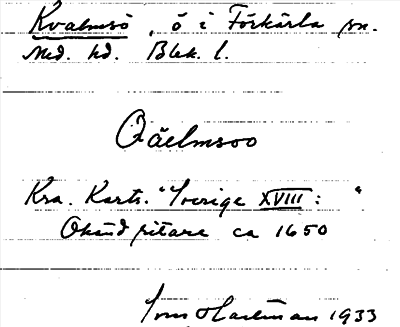 Kvalmsö, ö i Förkärla sn.
Med. hd. Blek. l.
Qvelmsoo
Kra. Karts. "Sverige XVIII: "
Okänd ritare ca 1650
1933